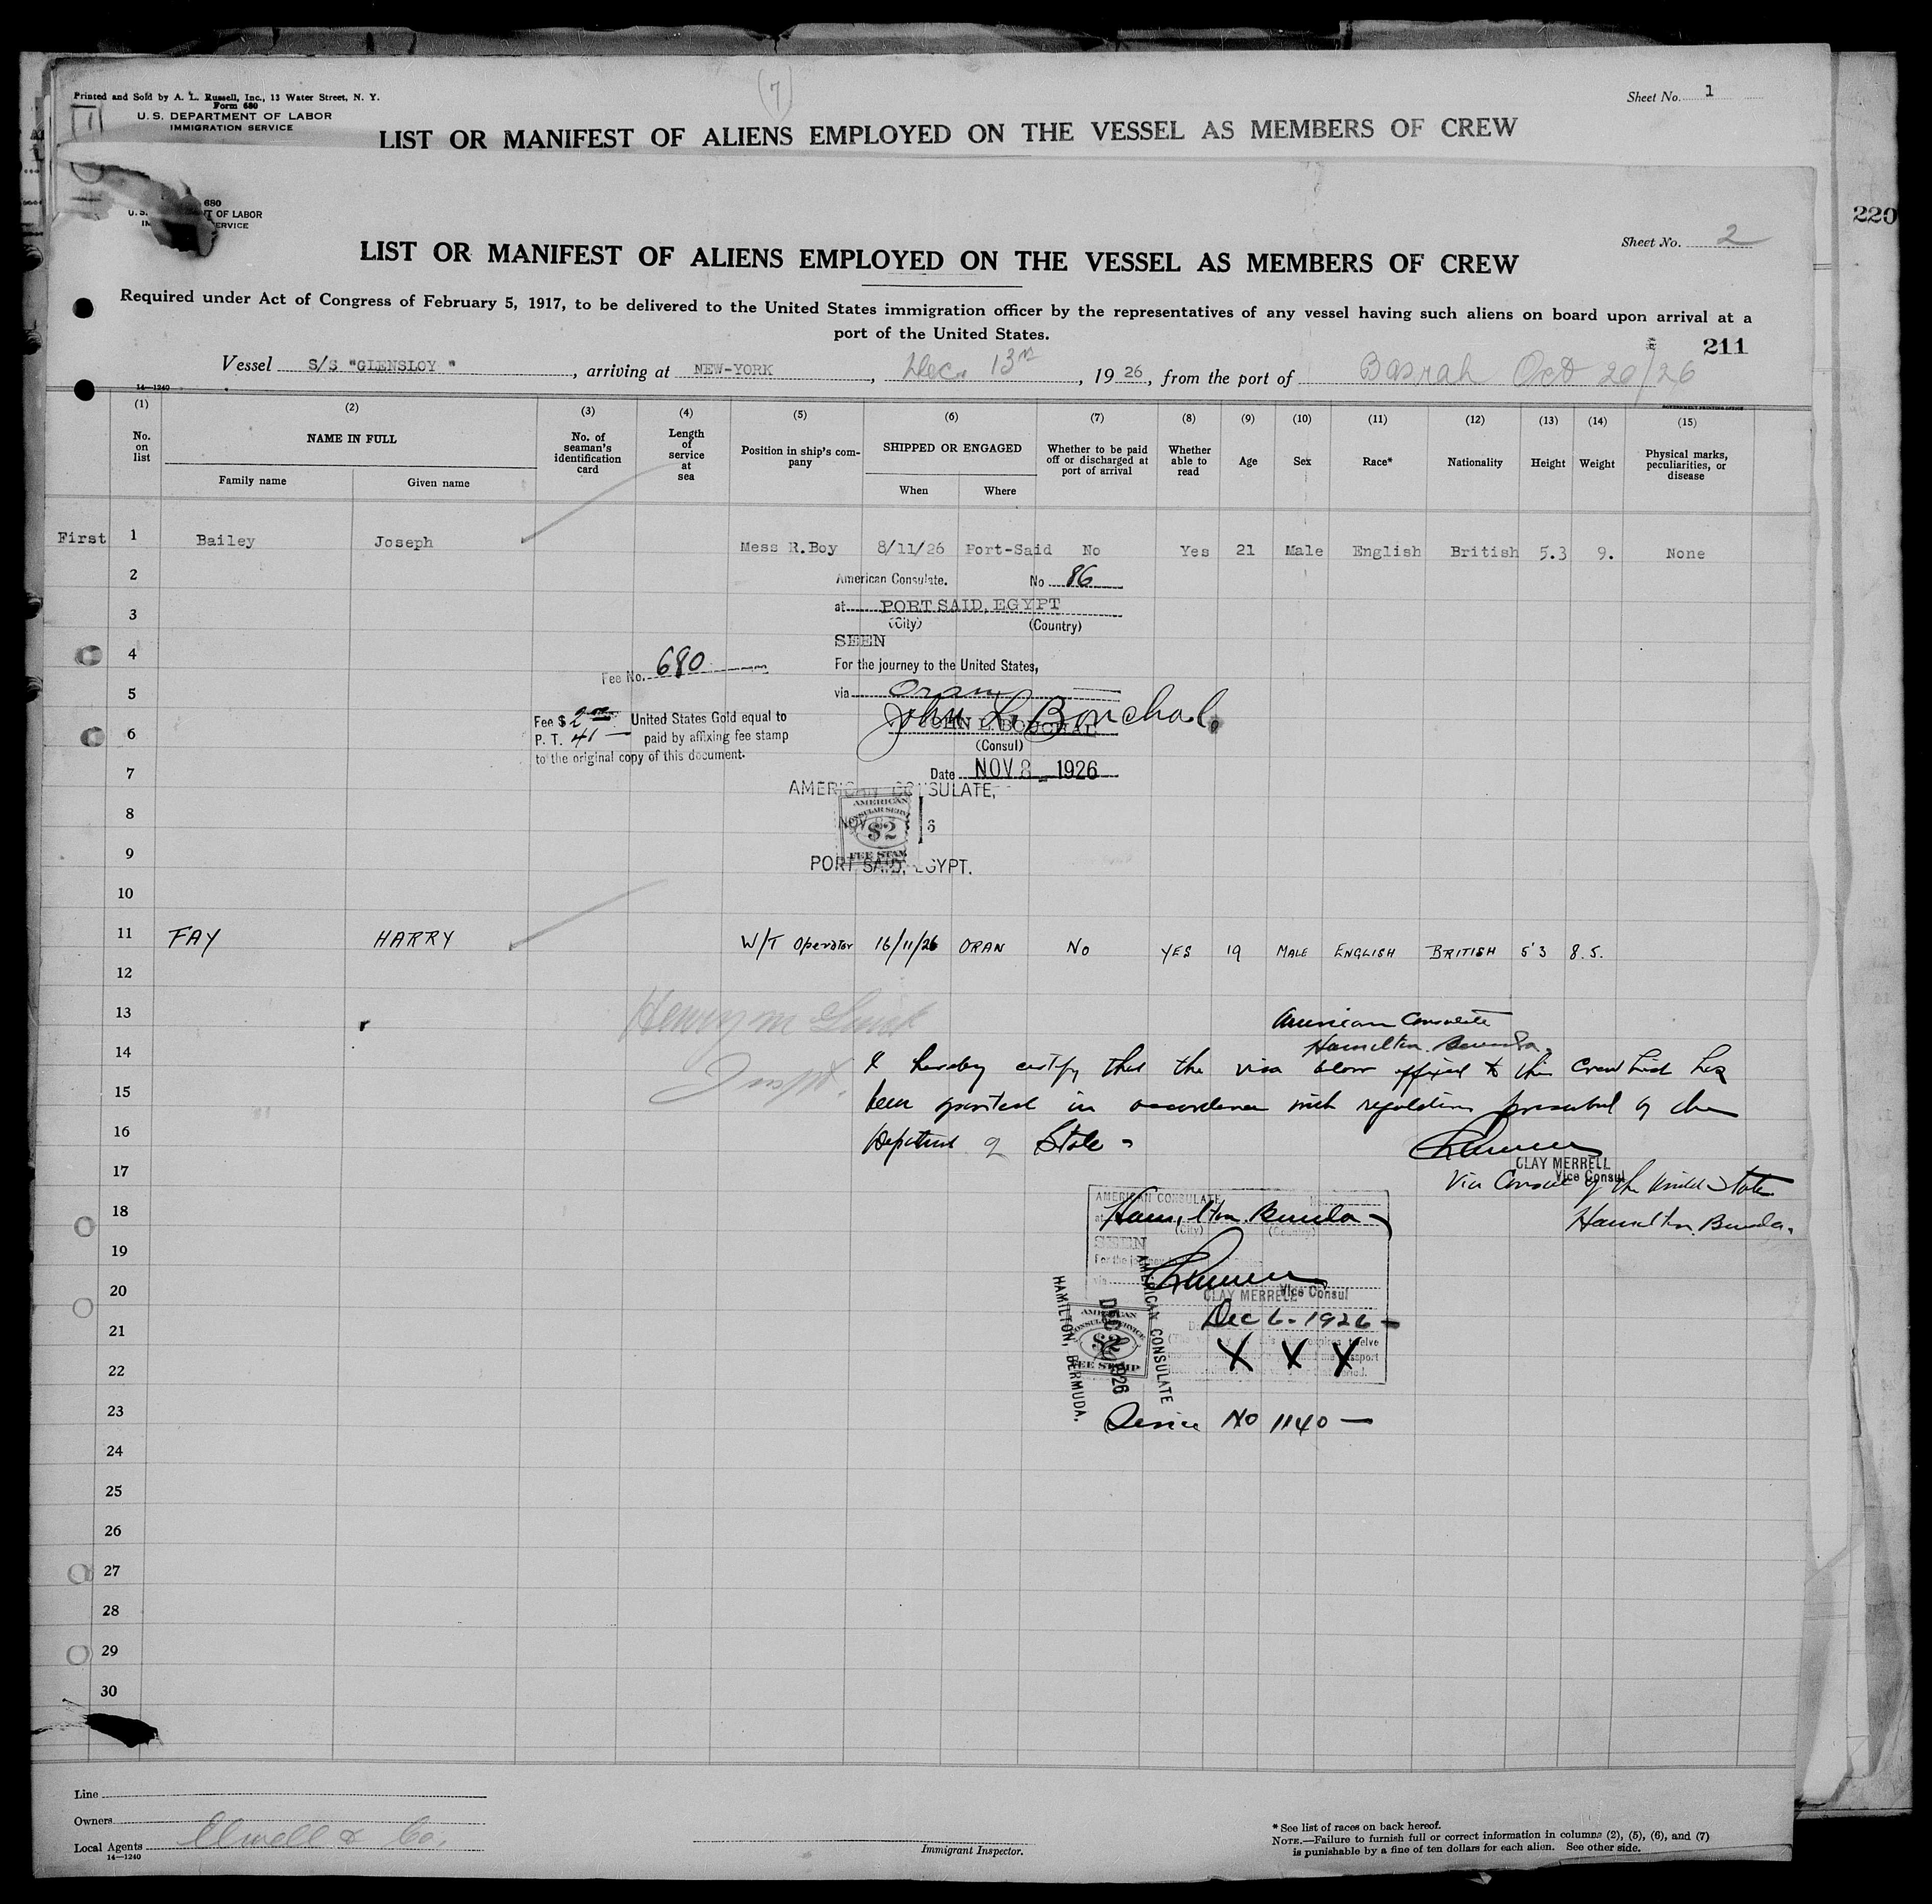 Printed and Sold by A. L. Russell, Inc., 13 Water Street, N. Y.
Form 680
U. S. DEPARTMENT OF LABOR
IMMIGRATION SERVICE
(7)
Sheet No. 1
LIST OR MANIFEST OF ALIENS EMPLOYED ON THE VESSEL AS MEMBERS OF CREW
680
T OF LABOR
ERVICE
220
Sheet No. 2
LIST OR MANIFEST OF ALIENS EMPLOYED ON THE VESSEL AS MEMBERS OF CREW
Required under Act of Congress of February 5, 1917, to be delivered to the United States immigration officer by the representatives of any vessel having such aliens on board upon arrival at a
port of the United States.
211
Vessel S/S "GLENSLOY ", arriving at NEW-YORK, Dec. 13th, 1926, from the port of Basrah Oct 20/26
14—1240
GOVERNMENT PRINTING OFFICE
(1) (2) (3) (4) (5) (6) (7) (8) (9) (10) (11) (12) (13) (14) (15)
No. on list
NAME IN FULL
Family name
Given name
No. of seaman's identification card
Length of service at sea
Position in ship's company
SHIPPED OR ENGAGED
When
Where
Whether to be paid off or discharged at port of arrival
Whether able to read
Age
Sex
Race*
Nationality
Height
Weight
Physical marks, peculiarities, or disease
First 1 Bailey Joseph Mess R.Boy 8/11/26 Port-Said No Yes 21 Male English British 5.3 9. None
2
American Consulate. No 86
3
at PORT SAID, EGYPT
(City) (Country)
SEEN
4
For the journey to the United States,
Fee No. 680
5
via Oran
Fee $ 2.00 United States Gold equal to
P. T. 41 — paid by affixing fee stamp
to the original copy of this document.
John L. Bouchal
JOHN L. BOUCHAL
6
(Consul)
7
Date NOV 8 1926
AMERICAN CONSULATE,
8
AMERICAN
CONSULAR SERVICE
$2
FEE STAMP
9
PORT SAID, EGYPT.
10
11 FAY HARRY W/T Operator 16/11/26 ORAN No YES 19 MALE ENGLISH BRITISH 5'3 8.5.
12
13
American Consulate
Hamilton. Bermuda.
14
I hereby certify that the visa below affixed to this Crew List has
15
been granted in accordance with regulations prescribed by the
16
Department of State -
CLAY MERRELL
Vice Consul
17
Vice Consul of the United States
Hamilton. Bermuda.
18
AMERICAN CONSULATE
at Hamilton. Bermuda
(City) (Country)
19
SEEN
20
CLAY MERRELL Vice Consul
21
Dec 6 - 1926 -
X X X
AMERICAN
CONSULAR SERVICE
$2
FEE STAMP
AMERICAN CONSULATE
HAMILTON, BERMUDA.
22
23
Service No 1140 —
24
25
26
27
28
29
30
Line
Owners
Local Agents Elwell & Co.
14—1240
Immigrant Inspector.
* See list of races on back hereof.
NOTE.—Failure to furnish full or correct information in columns (2), (5), (6), and (7)
is punishable by a fine of ten dollars for each alien. See other side.